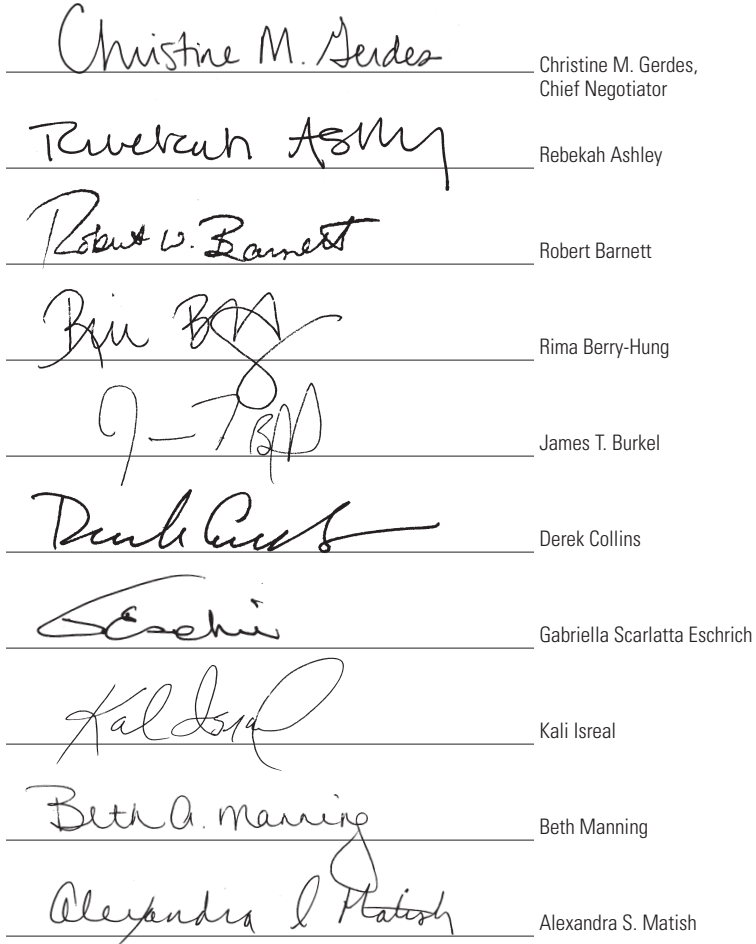 Christine M. Gerdes
Christine M. Gerdes,
Chief Negotiator
Rebekah Ashley
Rebekah Ashley
Robert W. Barnett
Robert Barnett
Rima Berry-Hung
James T. Burkel
Derek Collins
Gabriella Scarlatta Eschrich
Kali Isreal
Beth A. Manning
Beth Manning
Alexandra S Matish
Alexandra S. Matish